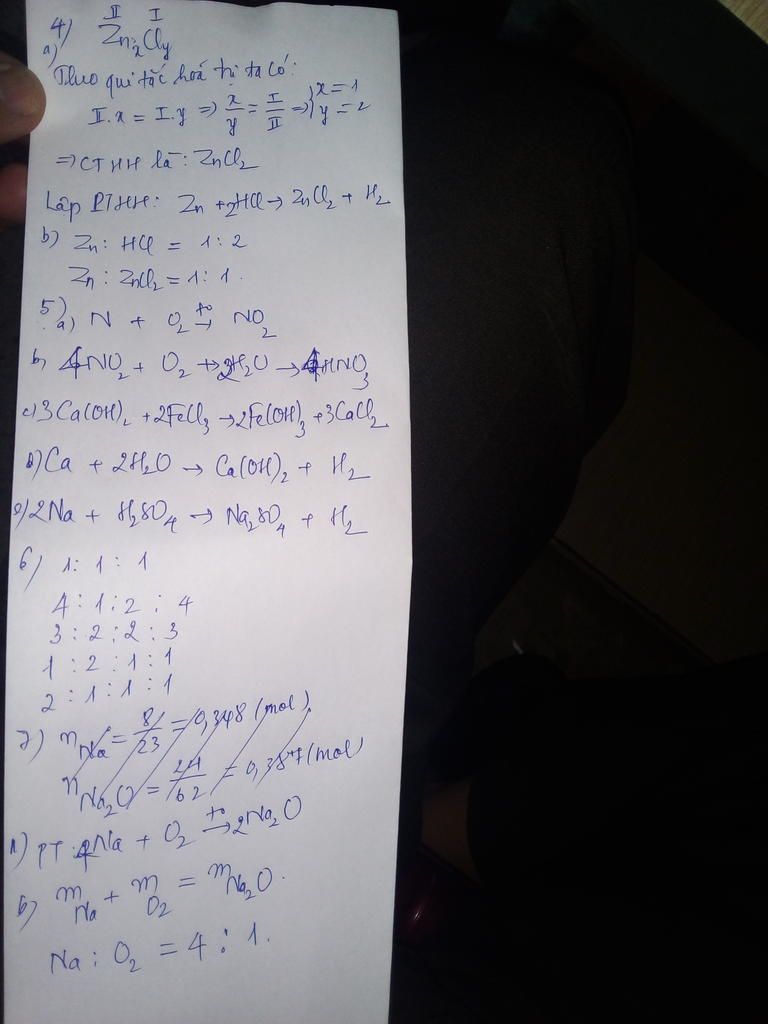 II I
4) Zn:2Cly
a)
Theo qui tắc hoá trị ta có:
II.x = I.y => x/y = I/II => x = 1 y = 2
=> CTHH là: ZnCl2
Lập PTHH: Zn + 2HCl → ZnCl2 + H2
b) Zn : HCl = 1 : 2
Zn : ZnCl2 = 1 : 1.
5)
a) N + O2 t°→ NO2
b) 4NO2 + O2 + 2H2O → 4HNO3
c) 3Ca(OH)2 + 2FeCl3 → 2Fe(OH)3 + 3CaCl2
d) Ca + 2H2O → Ca(OH)2 + H2
e) 2Na + H2SO4 → Na2SO4 + H2
6) 1 : 1 : 1
4 : 1 : 2 : 4
3 : 2 : 2 : 3
1 : 2 : 1 : 1
2 : 1 : 1 : 1
7) nNa = 8/23 = 0,348 (mol)
nNa2O = 24/62 = 0,387 (mol)
a) PT: 4Na + O2 t°→ 2Na2O
b) mNa + mO2 = mNa2O.
Na : O2 = 4 : 1.